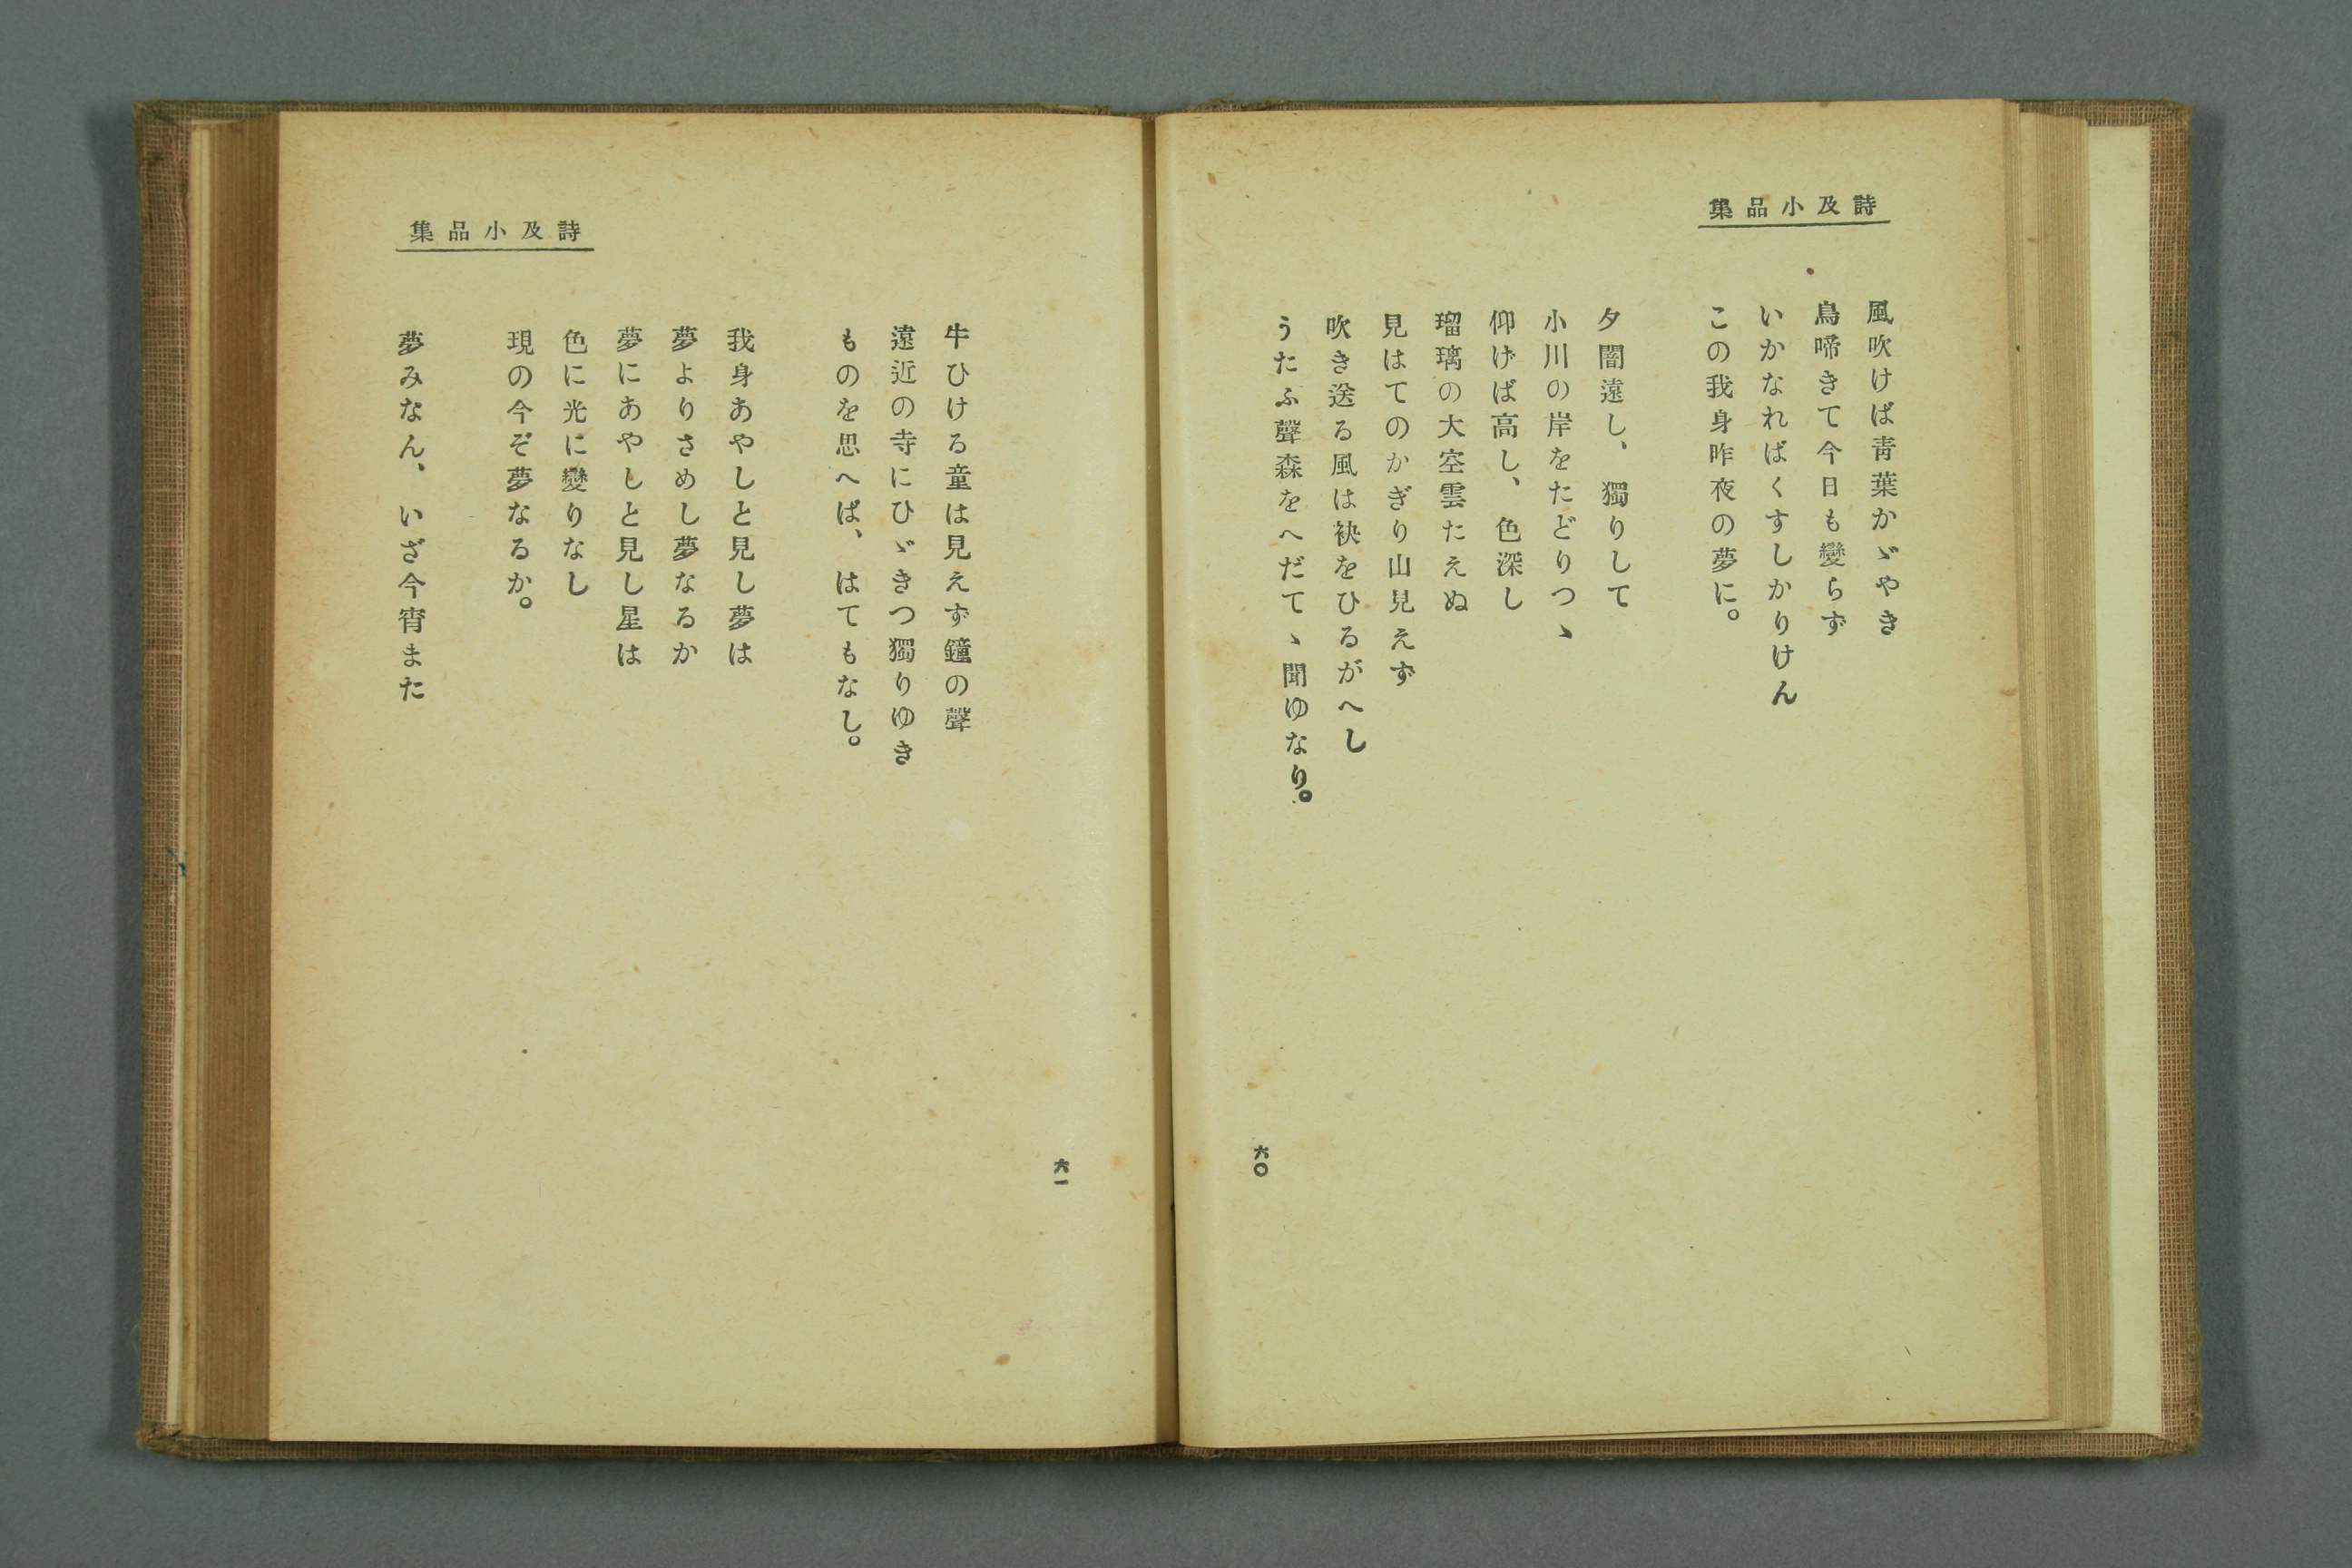 詩及小品集
風吹けば靑葉かゞやき
鳥啼きて今日も變らず
いかなればくすしかりけん
この我身昨夜の夢に。
夕闇遠し、獨りして
小川の岸をたどりつゝ
仰げば高し、色深し
瑠璃の大空雲たえぬ
見はてのかぎり山見えず
吹き送る風は袂をひるがへし
うたふ聲森をへだてゝ聞ゆなり。
六〇
詩及小品集
牛ひける童は見えず鐘の聲
遠近の寺にひゞきつ獨りゆき
ものを思へば、はてもなし。
我身あやしと見し夢は
夢よりさめし夢なるか
夢にあやしと見し星は
色に光に變りなし
現の今ぞ夢なるか。
夢みなん、いざ今宵また
六一